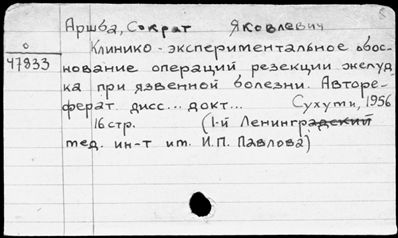 Аршба, Сократ Яковлевич
О
47833
Клинико-экспериментальное обос-
нование операций резекции желуд-
ка при язвенной болезни. Авторе-
ферат дисс... докт... Сухуми, 1956
16 стр. (1-й Ленинградский
мед. ин-т им. И.П. Павлова)